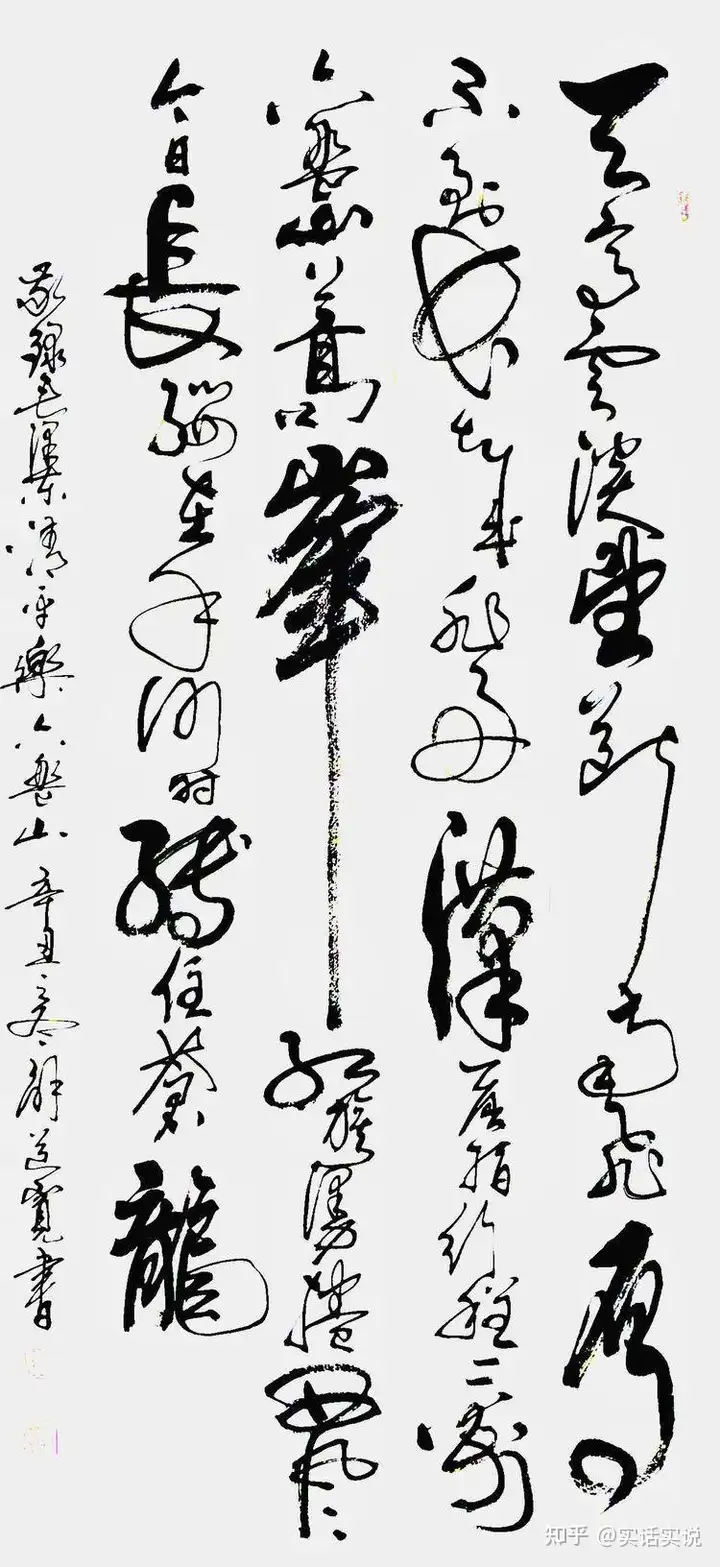 天高雲淡望斷南飛雁
不到長城非好漢屈指行程二萬
六盤山上高峯紅旗漫捲西風
今日長纓在手何时縛住蒼龍
敬錄毛澤東清平樂六盤山辛丑之冬解道寬書
知乎 @实话实说